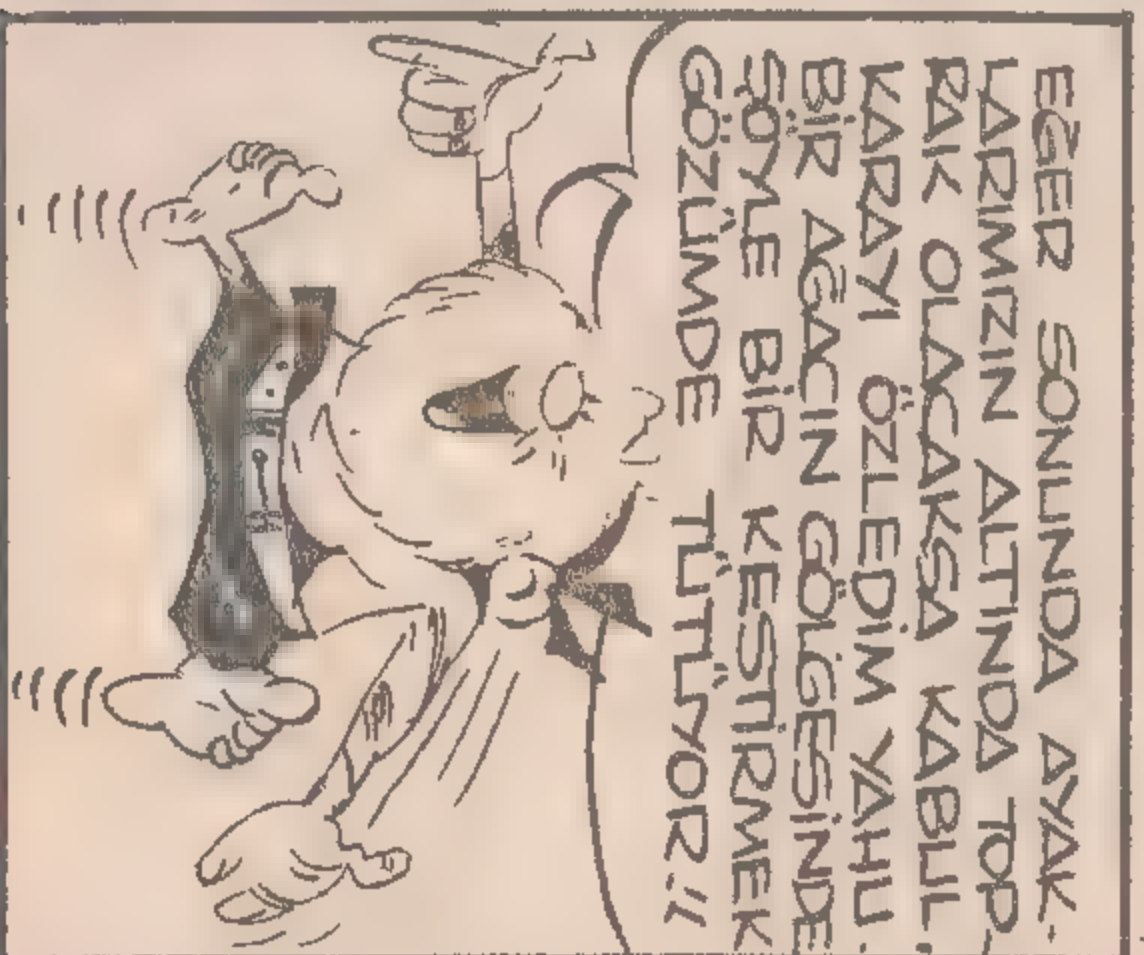 EĞER SONUNDA AYAK-
LARIMIZIN ALTINDA TOP-
RAK OLACAKSA KABUL.
KARAYI ÖZLEDİM YAHU.
BİR AĞACIN GÖLGESİNDE
ŞÖYLE BİR KESTİRMEK
GÖZÜMDE TÜTÜYOR!!